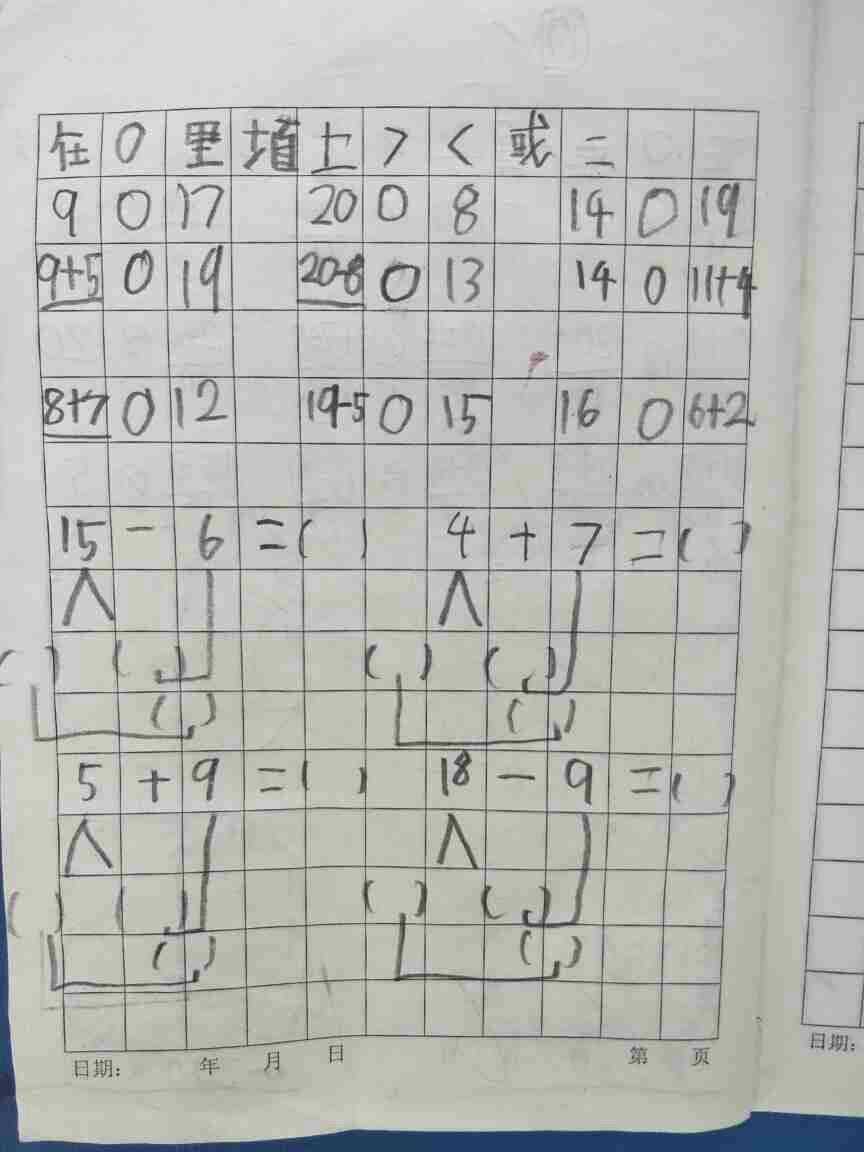 在○里填上><或=
9○17 20○8 14○19
9+5○19 20-8○13 14○11+4
8+7○12 19-5○15 16○6+2
15-6=( ) 4+7=( )
( ) ( ) ( ) ( )
( ) ( )
5+9=( ) 18-9=( )
( ) ( ) ( ) ( )
( ) ( )
日期: 年 月 日 第 页
日期: